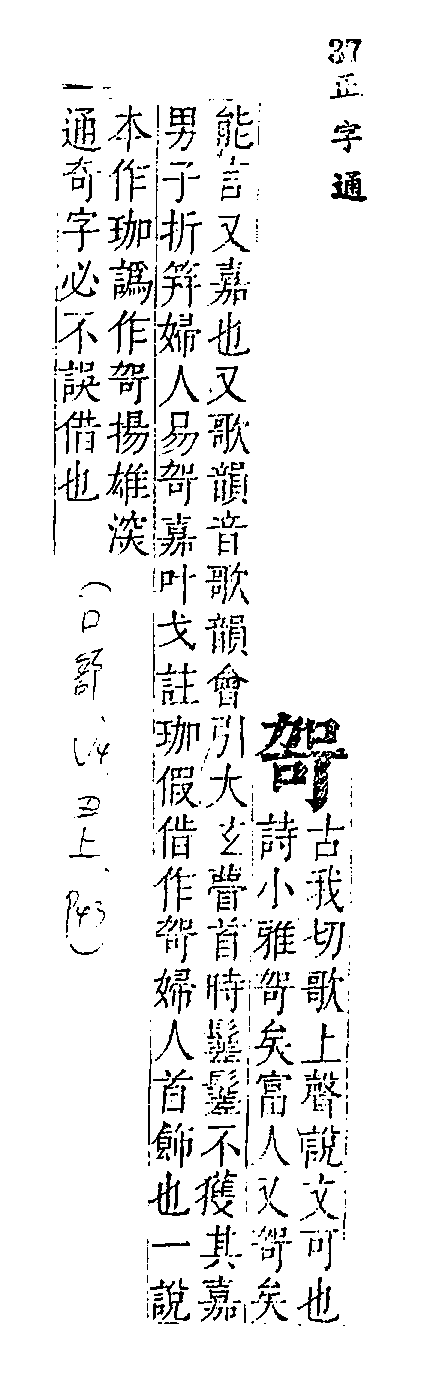 37正字通
哿
古我切歌上聲說文可也
詩小雅哿矣富人又哿矣
能言又嘉也又歌韻音歌韻會引大玄瞢首時不獲其嘉
男子折笄婦人易哿嘉叶戈註珈假借作哿婦人首飾也一說
本作珈譌作哿揚雄深
通奇字必不誤借也
(口部、上、P43)